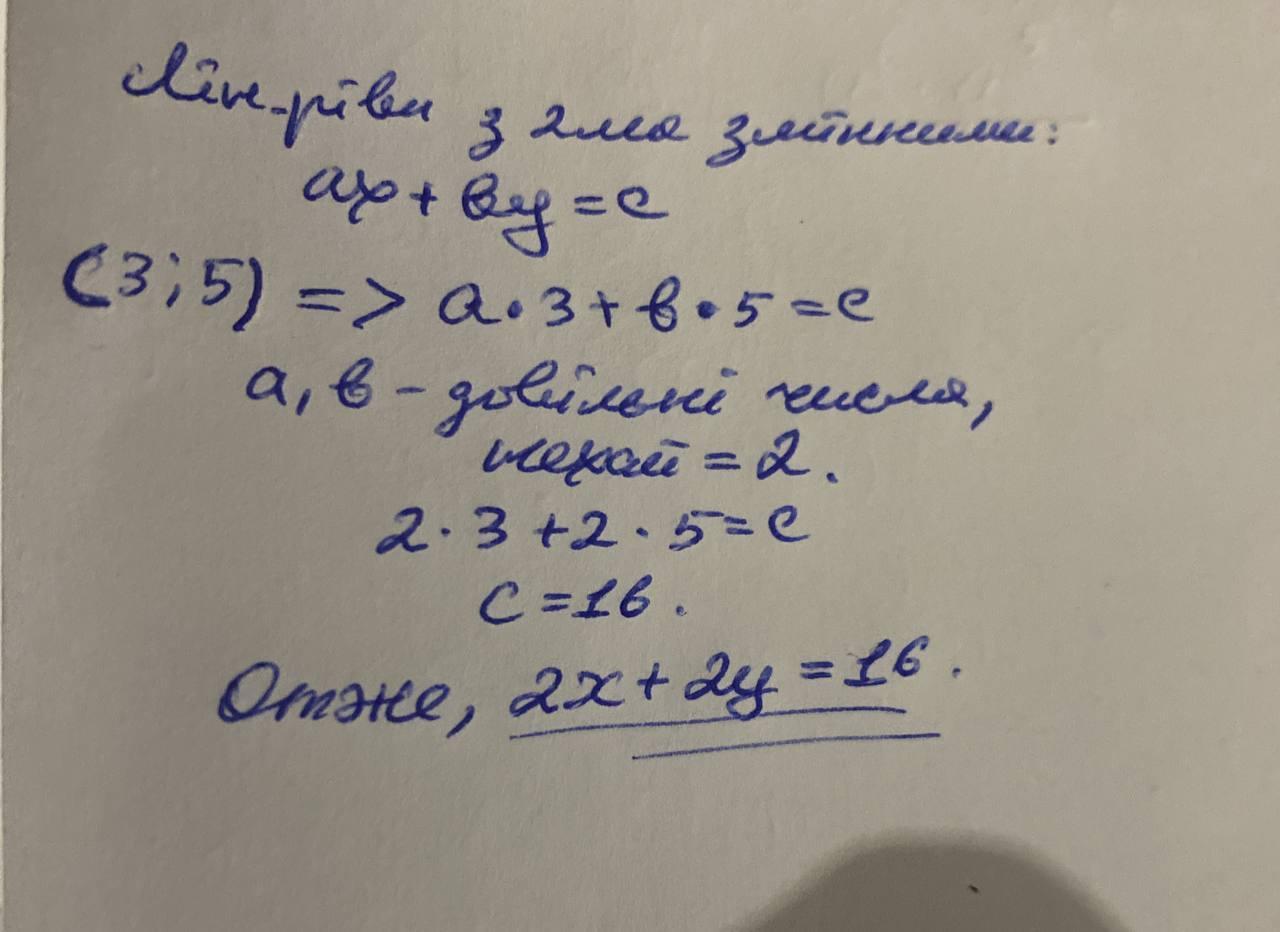 Лін. рівн з 2ма змінними:
ax + by = c
(3; 5) => a · 3 + b · 5 = c
a, b – довільні числа,
нехай = 2.
2 · 3 + 2 · 5 = c
c = 16.
Отже, 2x + 2y = 16.